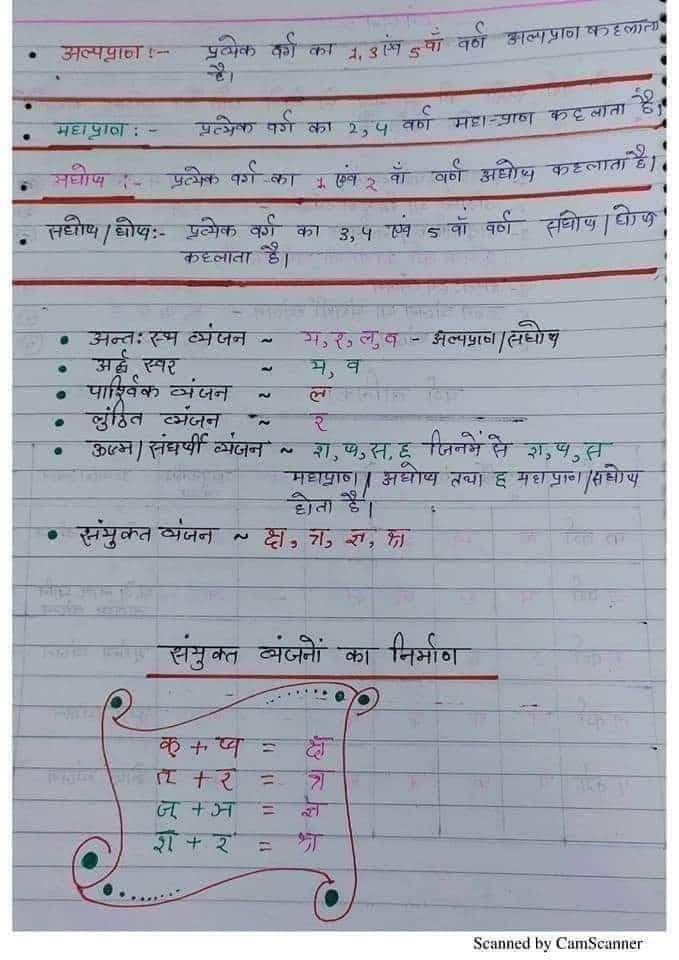 • अल्पप्राण :- प्रत्येक वर्ग का 1,3 एवं 5 वाँ वर्ण अल्पप्राण कहलाता
है।
• महाप्राण : - प्रत्येक वर्ग का 2,4 वर्ण महा-प्राण कहलाता है।
• अघोष :- प्रत्येक वर्ग का 1 एवं 2 वाँ वर्ण अघोष कहलाता है।
• सघोष/घोष:- प्रत्येक वर्ग का 3,4 एवं 5 वाँ वर्ण सघोष/घोष
कहलाता है।
• अन्तः स्थ व्यंजन ~ य,र,ल,व - अल्पप्राण/सघोष
• अर्द्ध स्वर ~ य, व
• पार्श्विक व्यंजन ~ ल
• लुंठित व्यंजन ~ र
• ऊष्म/संघर्षी व्यंजन ~ श,ष,स,ह जिनमें से श,ष,स
महाप्राण/अघोष तथा ह महाप्राण/सघोष
होता है।
• संयुक्त व्यंजन ~ क्ष, त्र, ज्ञ, श्र
संयुक्त व्यंजनों का निर्माण
क् + ष = क्ष
त + र = त्र
ज् + ञ = ज्ञ
श + र = श्र
Scanned by CamScanner